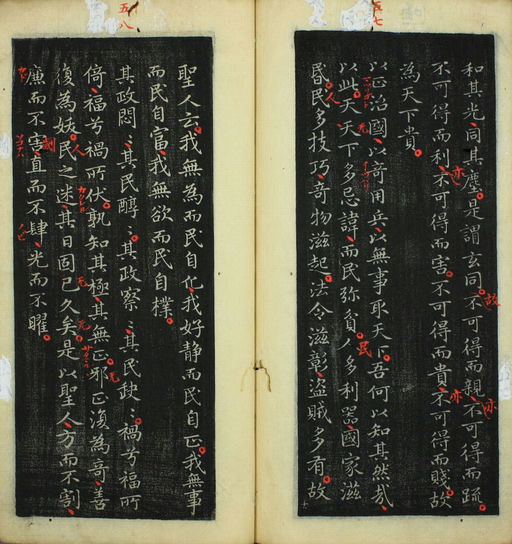 五七
和其光同其塵是謂玄同不可得而親不可得而疏
不可得而利不可得而害不可得而貴不可得而賤故
為天下貴
以正治國以奇用兵以無事取天下吾何以知其然哉
以此天天下多忌諱而民弥貧人多利器國家滋
昬民多技巧奇物滋起法令滋彰盜賊多有故
五八
聖人云我無為而民自化我好静而民自正我無事
而民自富我無欲而民自樸
其政悶〻其民醇〻其政察〻其民缺〻禍兮福所
倚福兮禍所伏孰知其極其無正邪正復為奇善
復為妖民之迷其日固已久矣是以聖人方而不割
廉而不害直而不肆光而不曜